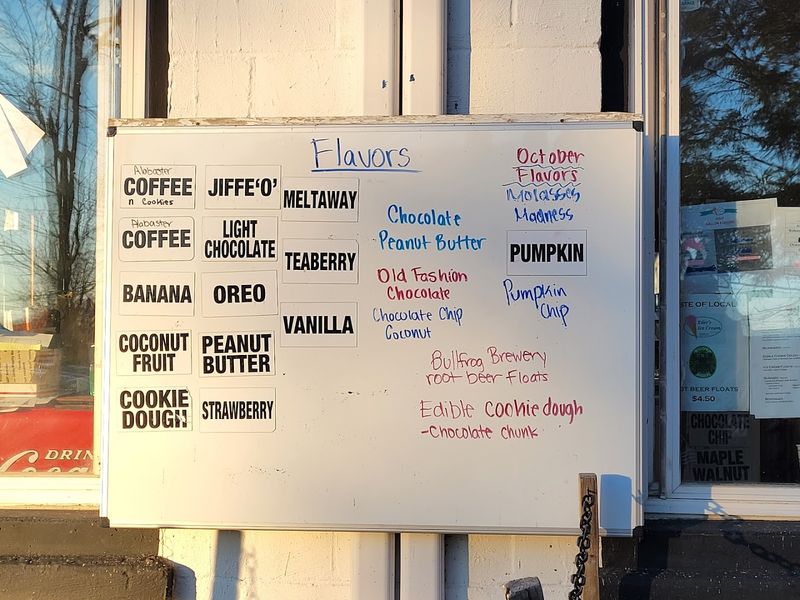 Flavors
Alabaster
COFFEE
n Cookies
Alabaster
COFFEE
BANANA
COCONUT
FRUIT
COOKIE
DOUGH
JIFFE'O'
LIGHT
CHOCOLATE
OREO
PEANUT
BUTTER
STRAWBERRY
MELTAWAY
TEABERRY
VANILLA
Chocolate
Peanut Butter
Old Fashion
Chocolate
Chocolate Chip
Coconut
Bullfrog Brewery
root beer Floats
Edible Cookie dough
-Chocolate chunk
October
Flavors
Molasses
Madness
PUMPKIN
Pumpkin
Chip
DRIN
TE OF LOCAL
Ice Cream
T BEER FLOATS
$4.50
CHOCOLATE
CHIP
MAPLE
WALNUT